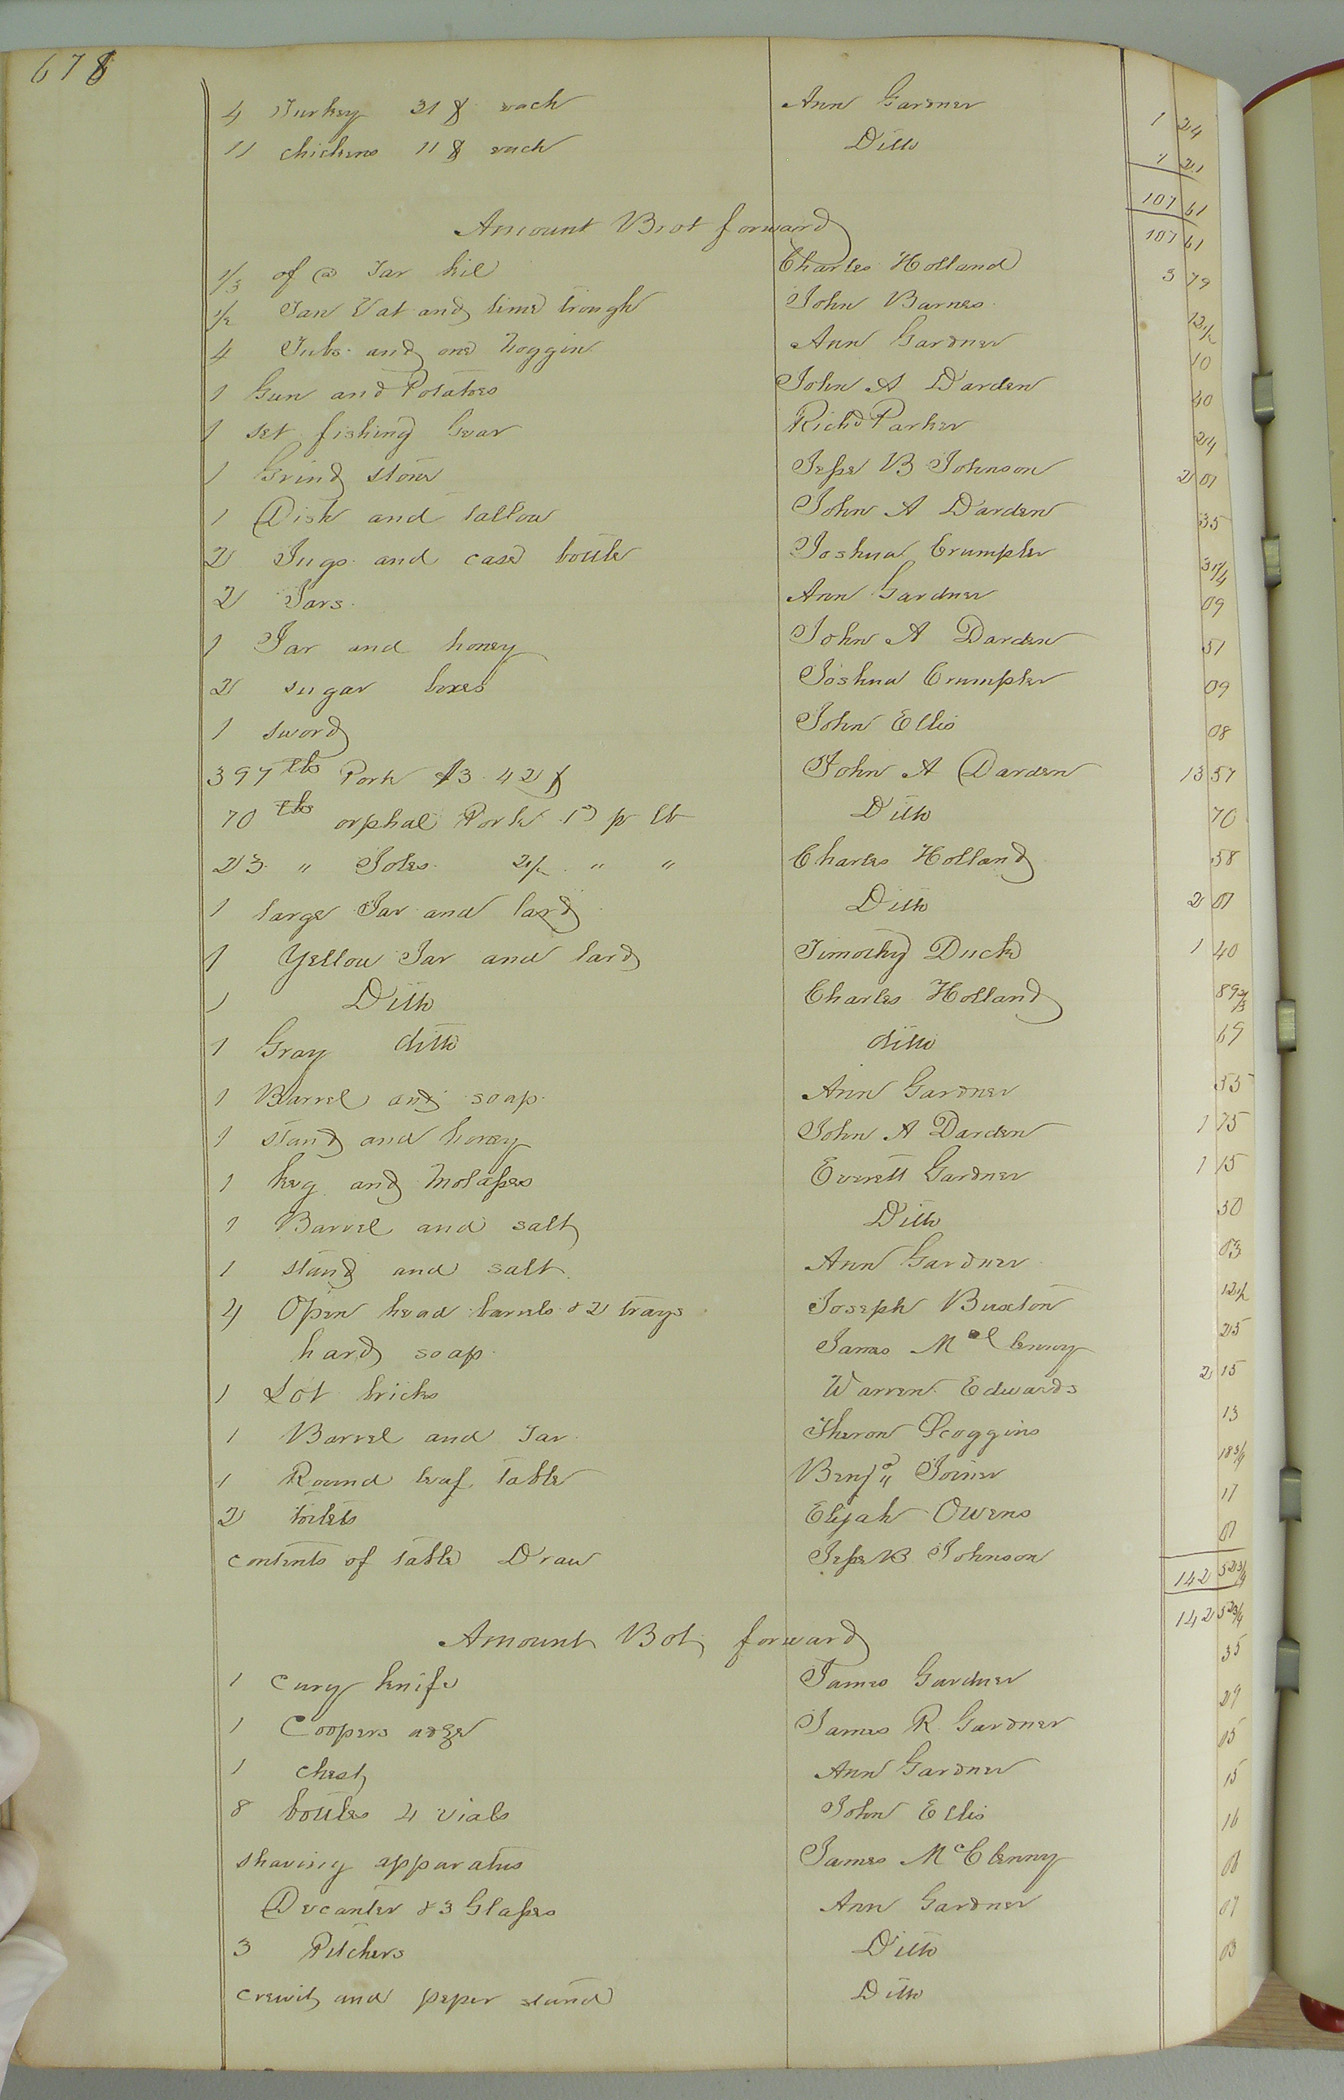 678
4 Turkey 31 ₰ each Ann Gardner 1 24
11 chickens 11 ₰ each Ditto 1 21
107 61
Amount Brot forward 107 61
1/3 of a Tar kil Charles Holland 3 79
1/2 Tan Vat and lime trough John Barnes 12 1/2
4 Tubs and one Noggin Ann Gardner 10
1 Gun and Potatoes John A Darden 40
1 set fishing Gear Richd Parker 24
1 Grind stone Jesse B Johnson 2 01
1 Dish and tallow John A Darden 35
2 Jugs and case bottle Joshua Crumpler 31 1/4
2 Jars Ann Gardner 09
1 Jar and honey John A Darden 51
2 sugar boxes Joshua Crumpler 09
1 sword John Ellis 08
397 lbs Pork $3.42 ₰ John A Darden 13 57
70 lbs orphal Pork 1 ₰ pr lb Ditto 70
23 " Joles 2 1/2 " " Charles Holland 58
1 large Jar and lard Ditto 2 01
1 Yellow Jar and lard Timothy Duck 1 40
1 Ditto Charles Holland 89
1 Gray ditto ditto 69
1 Barrel and soap Ann Gardner 55
1 stand and honey John A Darden 1 75
1 keg and Molasses Everett Gardner 1 15
1 Barrel and salt Ditto 50
1 stand and salt Ann Gardner 03
4 Open head barrels & 2 trays Joseph Buxton 12 1/2
hard soap James McClenny 25
1 Lot bricks Warren Edwards 2 15
1 Barrel and Tar Theron Scoggins 13
1 Round leaf table Benja Joiner 18 3/4
2 toilets Elijah Owens 17
contents of table Draw Jesse B Johnson 01
142 52 3/4
Amount Bot forward 142 52 3/4
1 cury knife James Gardner 35
1 Coopers adze James R Gardner 29
1 chest Ann Gardner 05
8 bottles 4 vials John Ellis 15
shaving apparatus James McClenny 16
Decanter & 3 Glasses Ann Gardner 08
3 Pitchers Ditto 07
crewit and peper stand Ditto 03